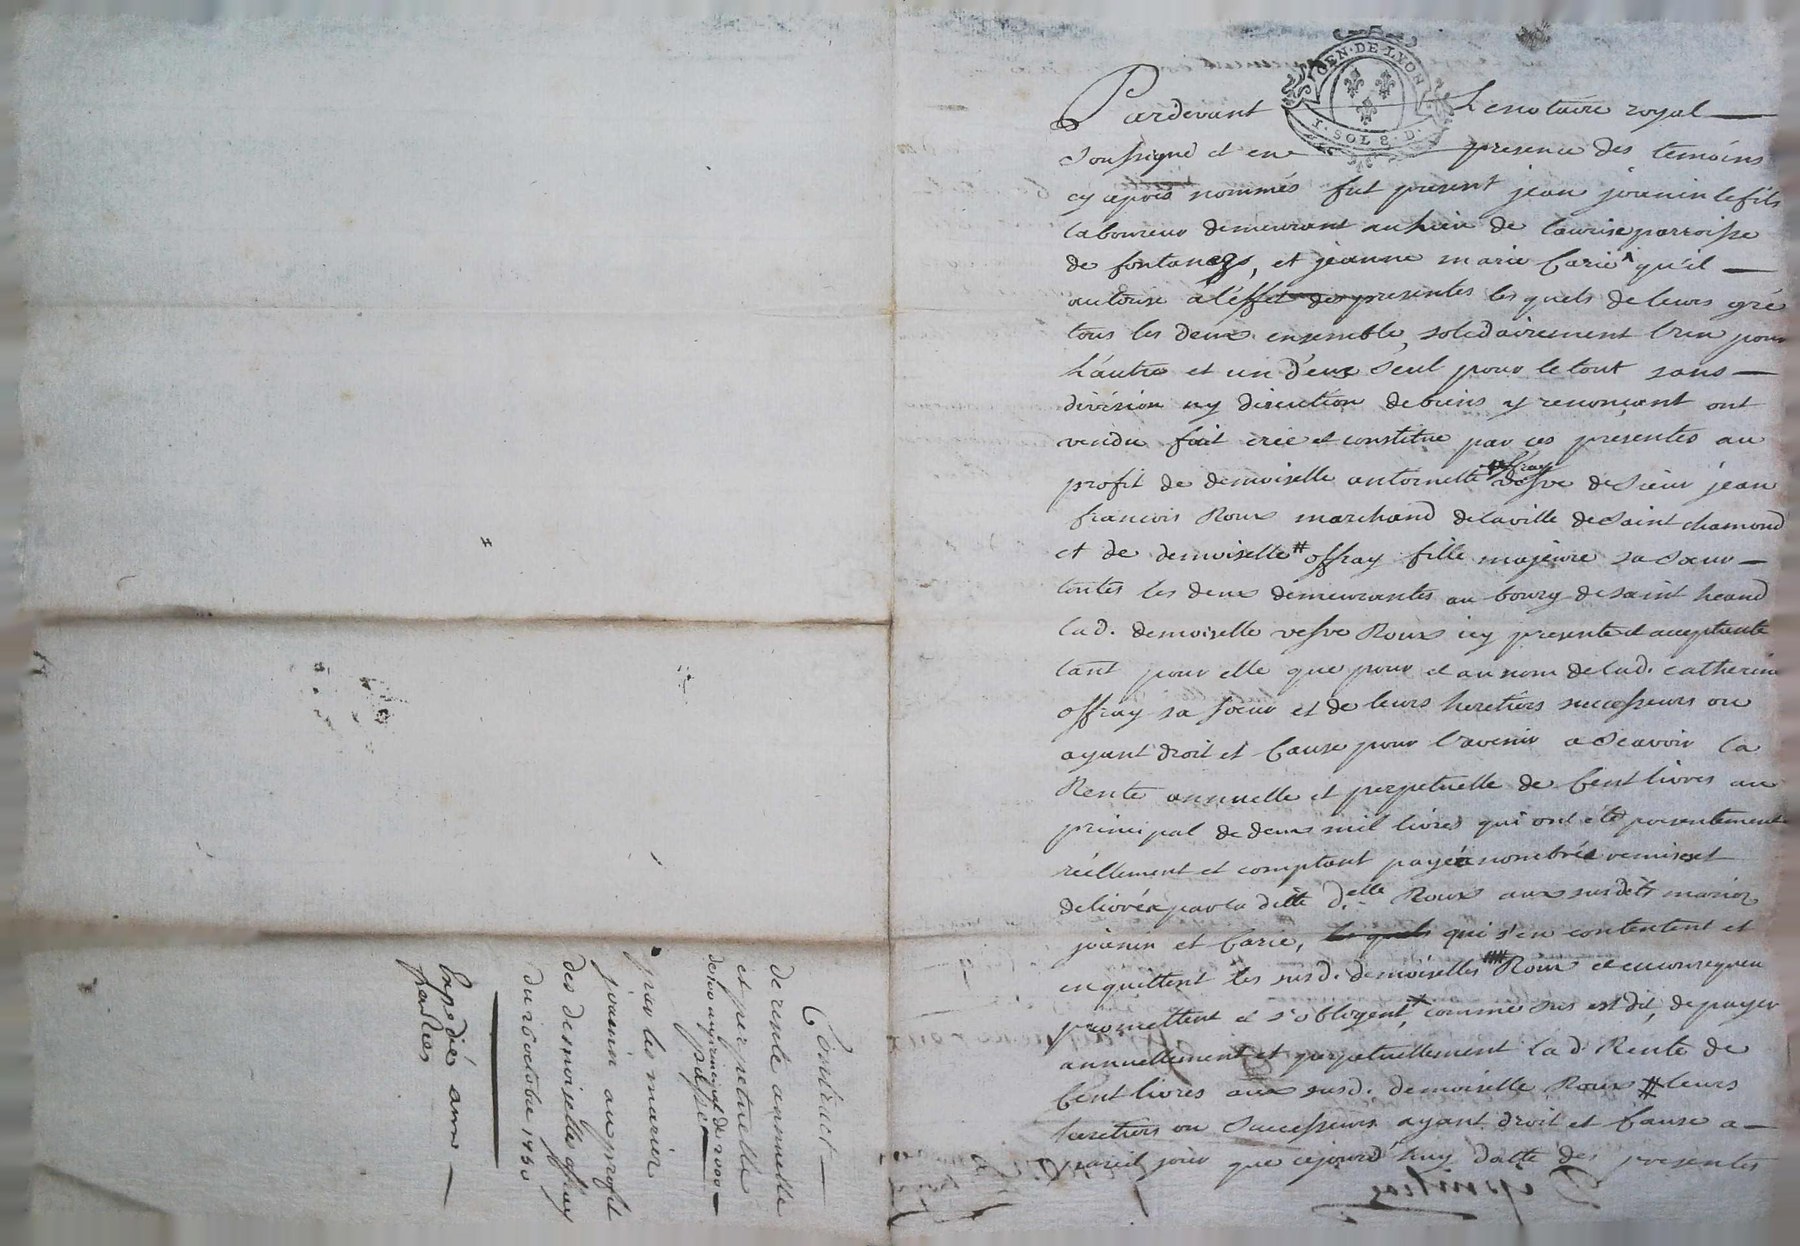 GEN·DE·LYON
I·SOL 8·D·
Pardevant Le notaire royal
Soussigné et en presence des temoins
cy apres nommés fut present jean jouenin le fils
laboureur demeurant au lieu de parroisse
de fontanes, et jeanne marie Carie qu'il
autorise a l'effet des presentes les quels de leurs gré
tous les deux ensemble, solidairement l'un pour
L'autre et un d'eux Seul pour le tout sans
division ny discution de biens y renonçant ont
vendu fait créé et constitue par ces presentes au
profit de demoiselle antoinette offray vesve de Sieur jean
francois Roux marchand de la ville de Saint chamond
et de demoiselle # offray fille majeure sa Sœur
toutes les deux demeurantes au bourg de saint heand
lad. demoiselle vesve Roux icy presente et acceptante
tant pour elle que pour et au nom de lad. catherine
offray sa sœur et de leurs heretiers successeurs ou
ayant droit et Cause pour l'avenir a Scavoir la
Rente annuelle et perpetuelle de Cent livres au
principal de deux mil livres qui ont été presentement
réellement et comptant payéé nombréé remise et
delivréé par la ditte d.elle Roux aux susdits mariez
jouenin et Carie, les quels qui s'en contentent et
en quittent les susd. demoiselles Roux et en consequence
promettent et s'obligent, comme sus est dit, de payer
annuellement et perpetuellement la d. Rente de
Cent livres aux susd. demoiselle Roux # leurs
heretiers ou Successeurs ayant droit et Cause a
pareil jour que cejourd'huy datte des presentes
Contract
de rente annuelle
et perpetuelle
de 100 au principal de 2000
passé
par les mariez
jouenin au profit
des demoiselles offray
du 26 octobre 1760
Expedié aux
parties